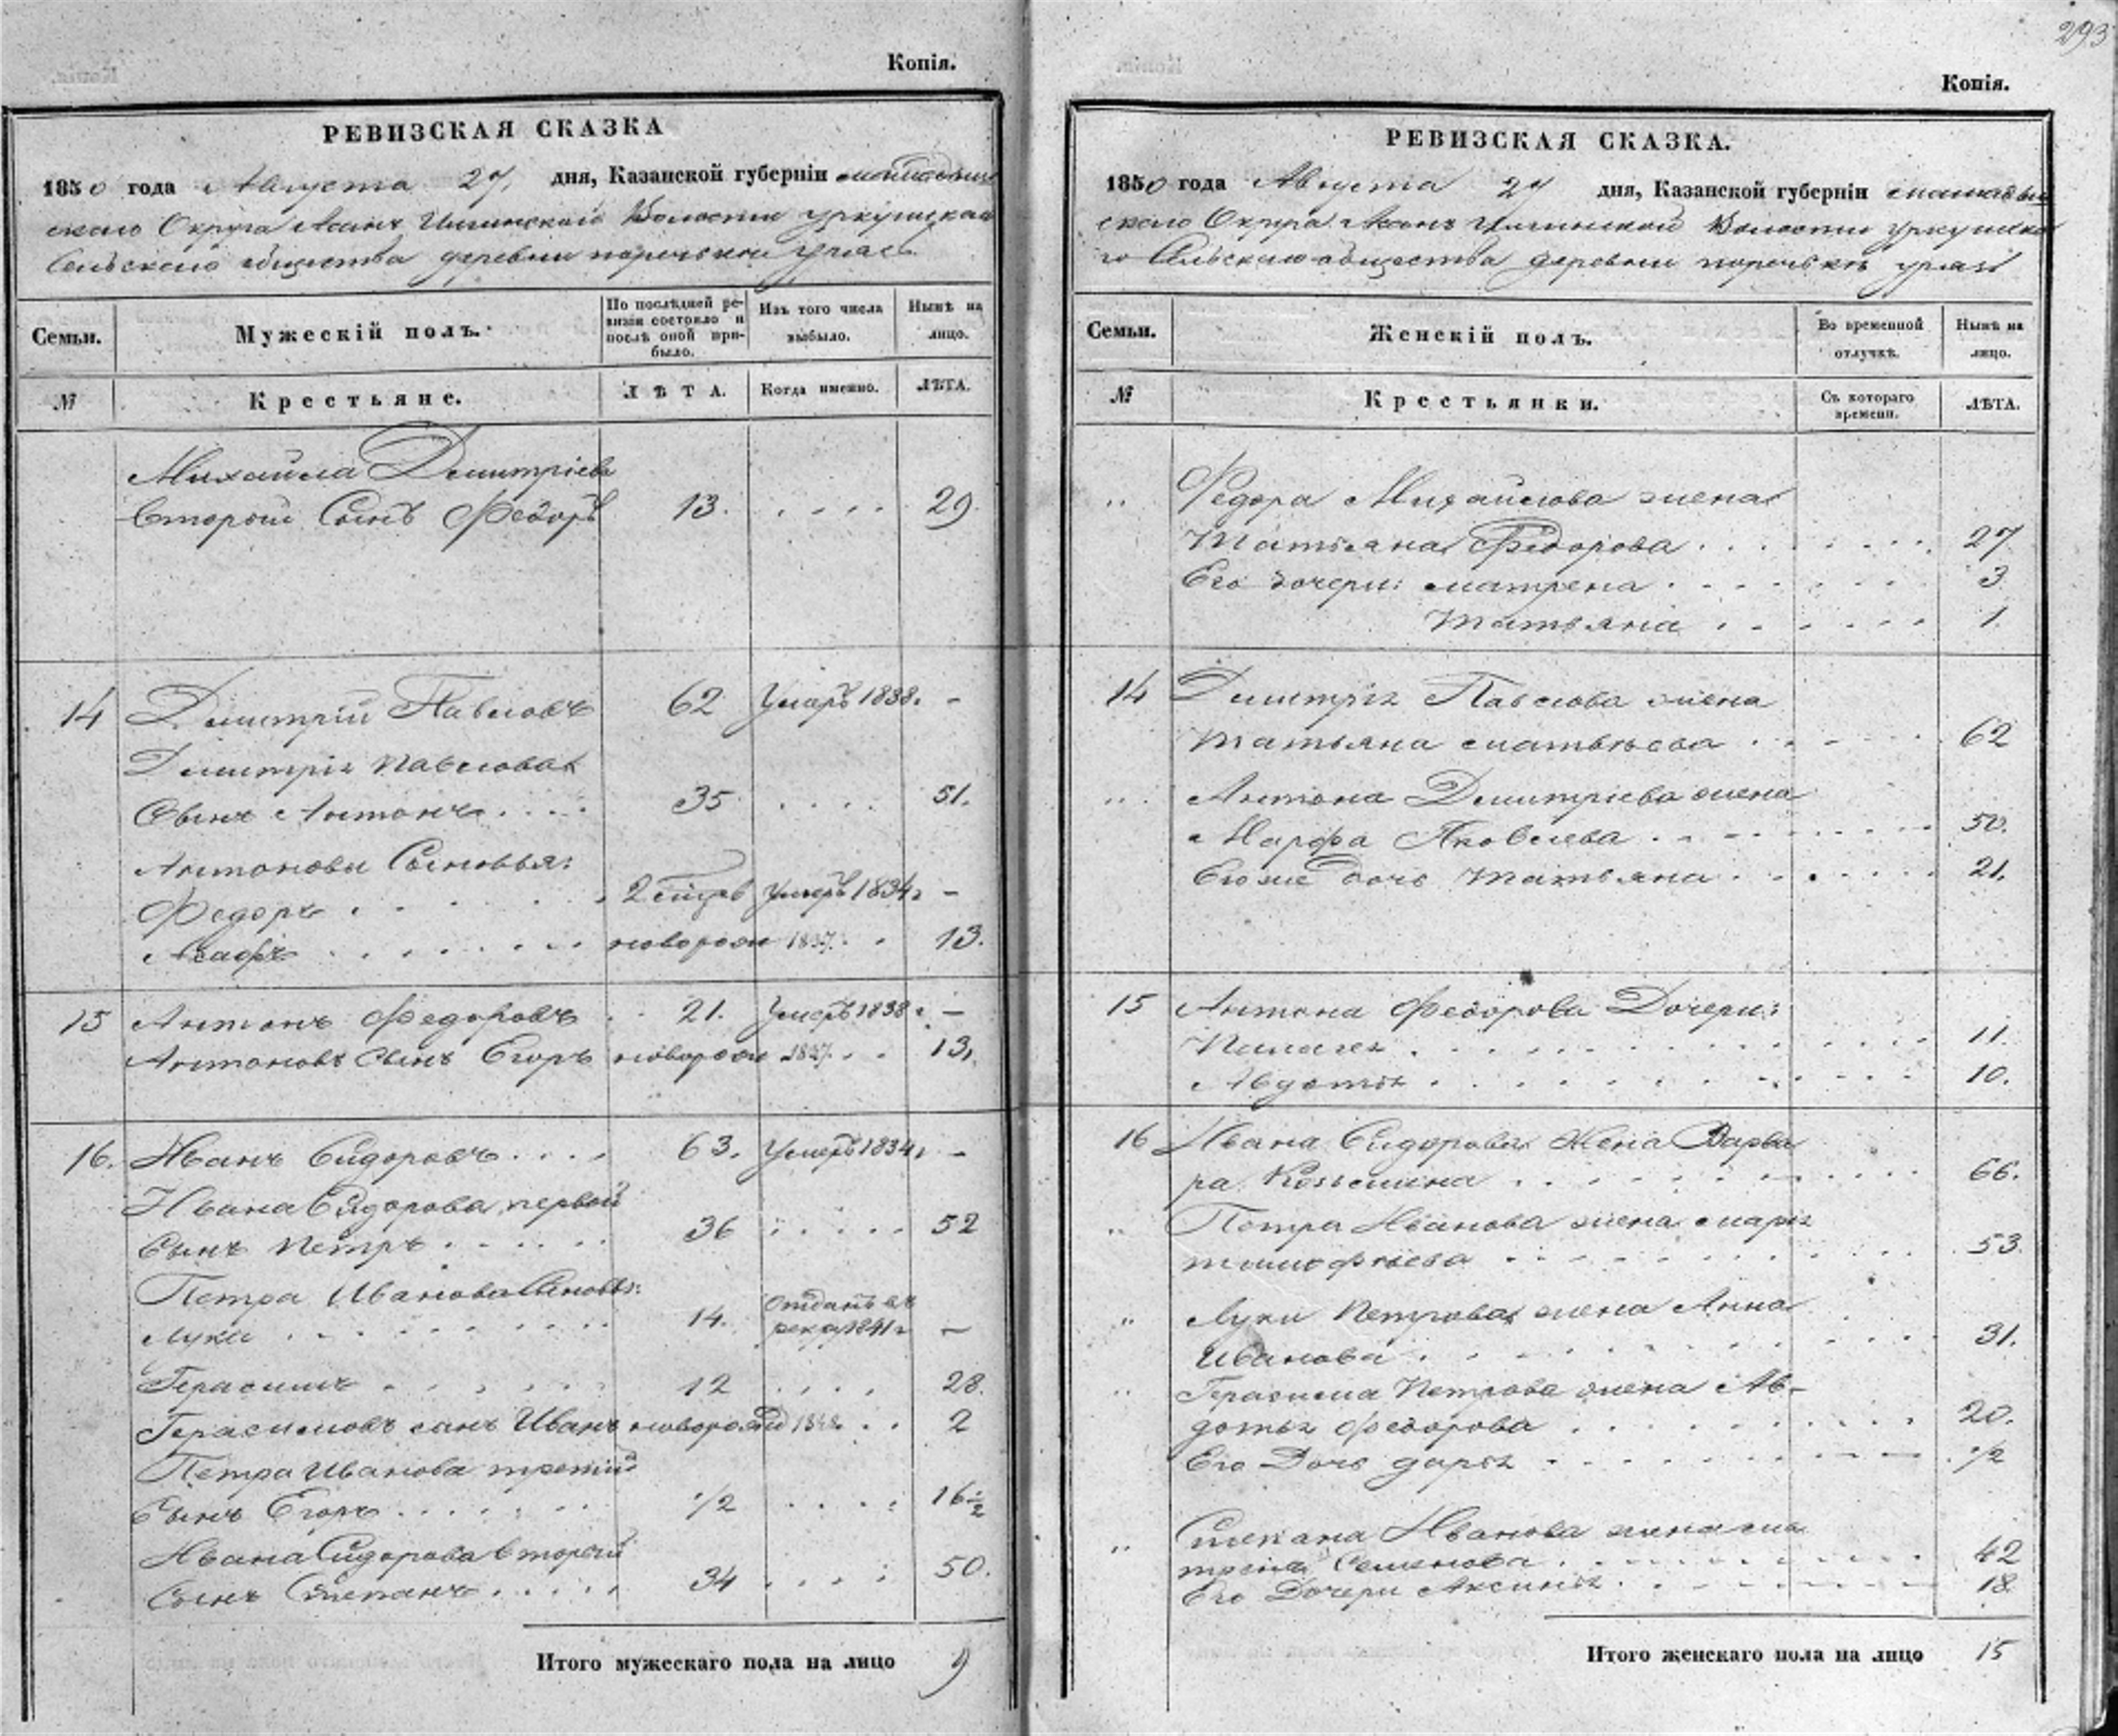 Копія.
РЕВИЗСКАЯ СКАЗКА
1850 года Августа 27 дня, Казанской губерніи мамадыш
скаго Округа Волости
Сельскаго общества деревни поречьки
Семьи.
Мужескій полъ.
По послѣдней ре-
визіи состояло и
послѣ оной при-
было.
Изъ того числа
выбыло.
Нынѣ на
лицо.
№
Крестьяне.
ЛѢТА.
Когда именно.
ЛѢТА.
Михайла Димитріева
второй Сынъ Федоръ 13. 29.
14 Димитрій Павловъ 62 Умеръ 1838. -
Димитрія Павлова
Сынъ Антонъ 35 51.
Антоновы Сыновья:
Федоръ Умеръ 1834г -
новорож 1837. 13.
15 Антонъ Федоровъ 21. Умеръ 1838г. -
Антоновъ сынъ Егоръ новорож 1837. 13.
16. Иванъ Сидоровъ 63. Умеръ 1834г -
Ивана Сидорова первой
Сынъ Петръ 36 52
Петра Иванова Сыновья:
Лука 14. Отданъ въ
рекру 1841г -
Герасимъ 12 28.
Герасимовъ сынъ Иванъ новорож 1848. 2
Петра Иванова третій
Сынъ Егоръ 1/2 16 1/2
Ивана Сидорова второй
Сынъ Степанъ 34 50.
Итого мужескаго пола на лицо 9
293
Копія.
РЕВИЗСКАЯ СКАЗКА.
1850 года Августа 27 дня, Казанской губерніи мамадыш
скаго Округа Волости
го Сельскаго общества деревни поречьки
Семьи.
Женскій полъ.
Во временной
отлучкѣ.
Нынѣ на
лицо.
№
Крестьянки.
Съ котораго
времени.
ЛѢТА.
„ Федора Михайлова жена
Татьяна Федорова 27
Его дочери: матрена 3.
Татьяна 1.
14 Димитрія Павлова жена
Татьяна матвѣева 62
„ Антона Димитріева жена
Марфа Яковлева 50.
Егоже дочь Татьяна 21.
15 Антона Федорова Дочери:
Палагея 11.
Авдотья 10.
16 Ивана Сидорова Жена Варва
ра Козьмина 66.
„ Петра Иванова жена марья
тимофѣева 53.
„ Луки Петрова жена Анна
Иванова 31.
„ Герасима Петрова жена Ав-
дотья Федорова 20.
Его Дочь дарья 1/2
„ Степана Иванова жена ма
трена Семенова 42
Его Дочери Аксинья 18
Итого женскаго пола на лицо 15